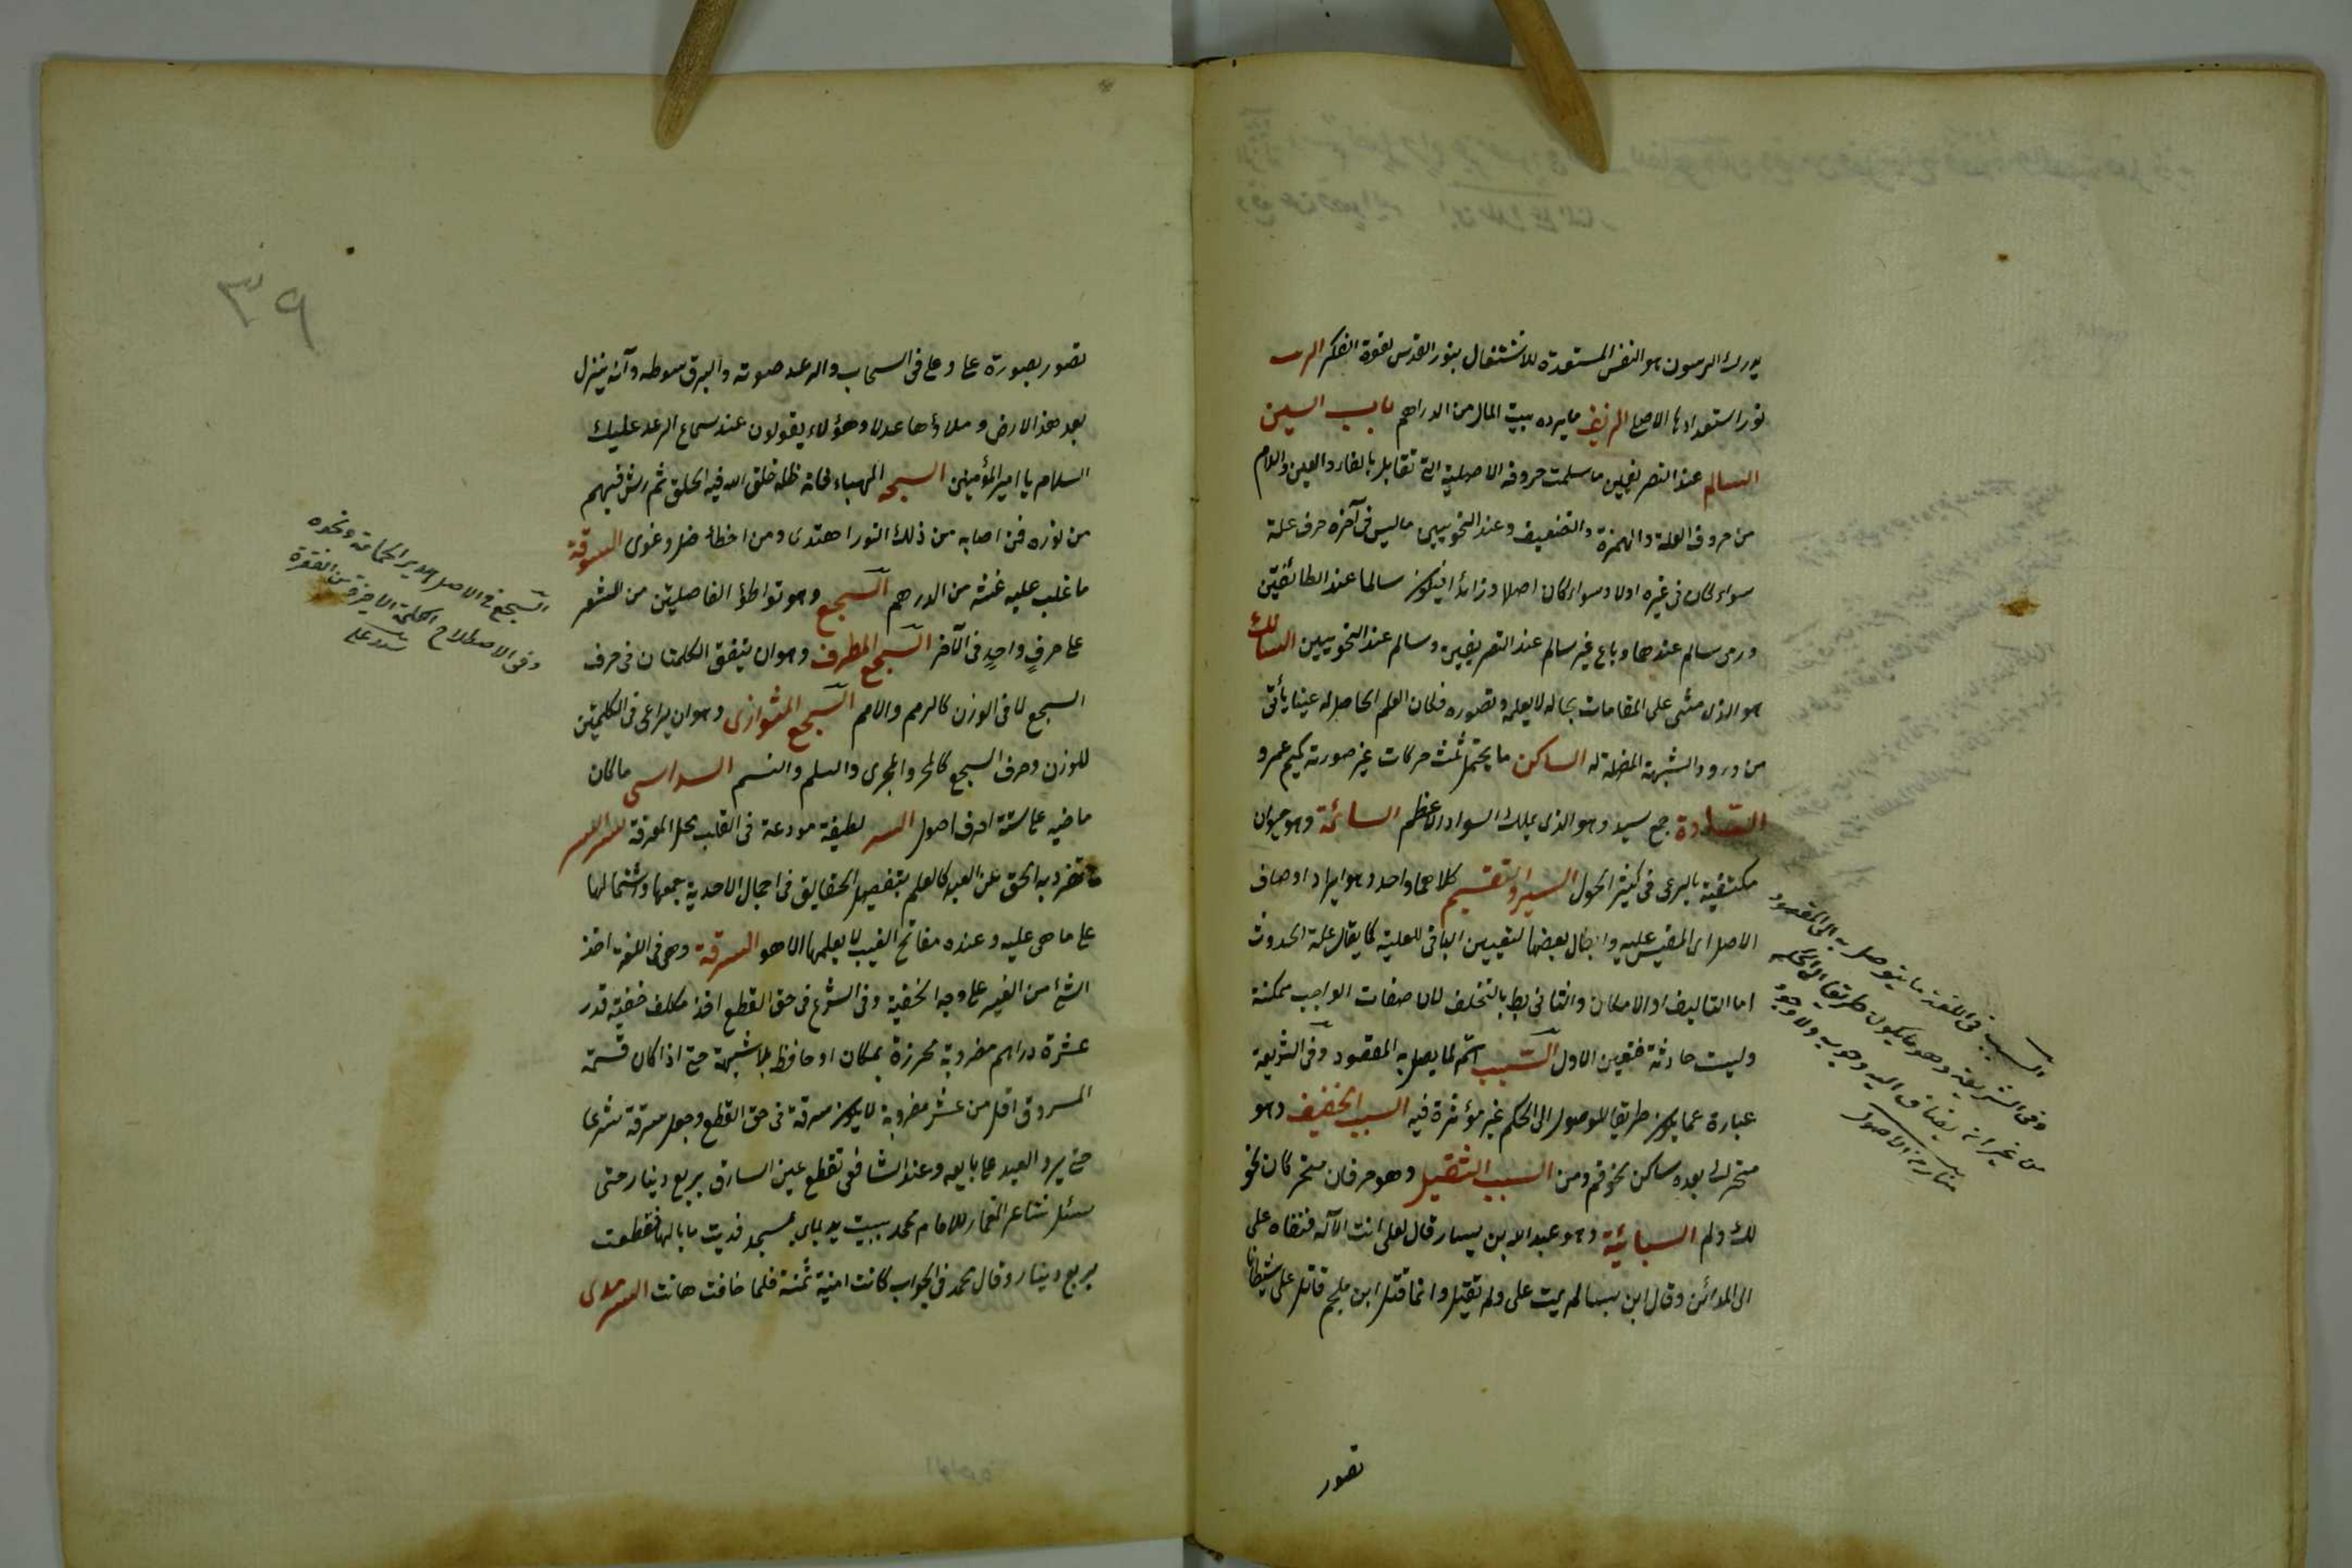 يدرك الرسون هو النفس المستعدة للاشتغال بنور القدس لقوة الفكر الزيت
نور استعدادها الاصلى الزيف مايرده بيت المال من الدراهم باب السين
السالم عند الصرفيين ما سلمت حروفه الاصلية التى تقابل بالفاء والعين واللام
من حروف العلة والهمزة والتضعيف وعند النحويين ماليس فى آخره حرف علة
سواء كان فى غيره اولا وسواء كان اصليا وزائدا فيكون سالما عند الطائفتين
ورمى سالم عندهما وباع غير سالم عند التصريفيين وسالم عند النحويين السالك
هو الذى مشى على المقامات بحاله لا بعلمه وتصوره فكان العلم الحاصل له عينا يأتى
من ورود الشبهة المضلة له الساكن ما يحتمل ثلث حركات غير صورته كميم عمرو
السادة جمع سيد وهو الذى يملك السواد الاعظم السائمة وهو حيوان
مكتفية بالرعى فى كثير الحول السبر والتقسيم كلاهما واحد وهو ايراد اوصاف
الاصل اى المقيس عليه وابطال بعضها لتعيين الباقى للعلية كما يقال علة الحدوث
اما التاليف او الامكان والثانى بط بالتخلف لان صفات الواجب ممكنة
وليست حادثة فتعين الاول السبب اسم لما يصل به المقصود وفى الشريعة
عبارة عما يكون طريقا للوصول الى الحكم غير مؤثرة فيه السبب الخفيف وهو
متحرك بعده ساكن نحو قم ومن السبب الثقيل وهو حرفان متحركان نحو
لك ولم السبائية وهو عبد الله بن يسار قال لعلى انت الآله فنفاه على
الى المدائن وقال ابن سبا لم يمت على ولم يقتل وانما قتل ابن ملجم قاتل على شيطانا
تصور
السبب فى اللغة ما يتوصل به الى المقصود
وفى الشريعة وهو ما يكون طريقا الى الحكم
من غير ان يضاف اليه وجوب ولا وجود
منار من الاصول
٣٩
تصور بصورة على وعلى فى السحاب والرعد صوته والبرق سوطه وآنه ينزل
بعد هذا الارض وملأها عدلا وهؤلاء يقولون عند سماع الرعد عليك
السلام يا امير المؤمنين السبحة الهباء فانه ظلة خلق الله فيه الخلق ثم رش فيهم
من نوره فمن اصابه من ذلك النور اهتدى ومن اخطأ ضل وغوى الستوقة
ما غلب عليه غشه من الدرهم السجع وهو تواطؤ الفاصلتين من النثر
على حرف واحد فى الآخر السجع المطرف وهو ان يتفق الكلمتان فى حرف
السجع لا فى الوزن كالرمم والامم السجع المتوازى وهو ان يراعى فى الكلمتين
للوزن وحرف السجع كالمحر والمجرى والقلم والنسم السداسى ما كان
ماضيه على ستة احرف اصول السر لطيفة مودعة فى القلب محل المعرفة سر السر
تفرد به الحق عن العبد كالعلم بتفصيل الحقايق فى اجمال الاحدية جمعها واشتمالها
على ما هى عليه وعنده مفاتح الغيب لا يعلمها الا هو السرقة وهى فى اللغة اخذ
الشئ من الغير على وجه الخفية وفى الشرع فى حق القطع اخذ مكلف خفية قدر
عشرة دراهم مضروبة محرزة بمكان او حافظ بلا شبهة حتى اذا كان قيمة
المسروق اقل من عشر مضروبة لا يكون سرقة فى حق القطع وجعل سرقة شرعا
حتى يرد العبد على بايعه وعند الشافعى تقطع يمين السارق بربع دينار حتى
سئل شاعر الفخار للامام محمد ببيت يد بماى عسجد فديت ما بالها قطعت
بربع دينار وقال محمد فى الجواب كانت امنية ثمنة فلما خانت هانت السرمدى
السجع فى الاصل هدير الحمامة ونحوه
وفى الاصطلاح الكلمة الاخيرة من الفقرة
سيد على